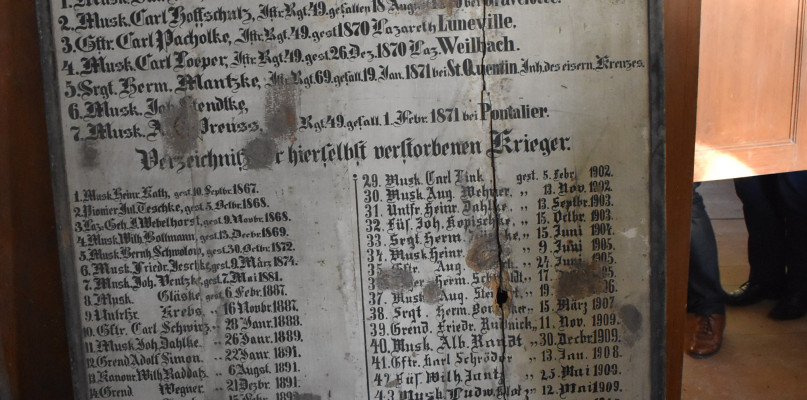 2. Musk. Carl Hoffschulz, Iftr. Rgt. 49. gefallen 18. August
3. Gftr. Carl Pacholke, Iftr. Rgt. 49. gest. 1870 Lazareth Luneville.
4. Musk. Carl Loeper, Iftr. Rgt. 49. gest. 26. Dez. 1870 Laz. Weilbach.
5. Srgt. Herm. Mantzke, Iftr. Rgt. 69. gefall. 19. Jan. 1871 bei St. Quentin, Inh. des eisern. Kreuzes.
6. Musk. Joh. Stendlke,
7. Musk. A Preuss, Rgt. 49. gefall. 1. Febr. 1871 bei Pontalier.
Verzeichnitz der hierselbst verstorbenen Krieger.
1. Musk. Heinr. Kath, gest. 10. Septbr. 1867.
2. Pionier Jul. Teschke, gest. 5. Octbr. 1868.
3. Laz. Geh. J. Webelhorst, gest. 9. Novbr. 1868.
4. Musk. Wilh. Hollmann, gest. 15. Decbr. 1869.
5. Musk. Bernh. Schmolow, gest. 30. Octbr. 1872.
6. Musk. Friedr. Jeschke, gest. 9. März 1874.
7. Musk. Joh. Ventzke, gest. 7. Mai 1881.
8. Musk. Gläske, gest. 6. Febr. 1887.
9. Untrffz. Krebs, " 16. Novbr. 1887.
10. Gftr. Carl Schwirz " 28. Janr. 1888.
11. Musk. Joh. Dahlke. " 26. Janr. 1889.
12. Grend. Adolf Simon. " 22. Janr. 1891.
13. Kanour. Wilh. Raddatz. " 6. Augst. 1891.
14. Grend. Wegner. " 21. Dezbr. 1891.
29. Musk. Carl Fink gest. 5. Febr. 1902.
30. Musk. Aug. Wehner, " 13. Nov. 1902.
31. Untfr. Heinr. Dahlke, " 13. Septbr. 1903.
32. Füs. Joh. Kopischke, " 15. Octbr. 1903.
33. Srgt. Herm. " 15. Juni 1904.
34. Musk. Heinr. " 9. Juni 1905.
35. Gftr. Aug. " 24. Juni 1905.
Herm. " 17.
37. Musk. Aug. " 19.
38. Sergt. Herm. " 15. März 1907.
39. Grend. Friedr. Rudnick, " 11. Nov. 1909.
40. Musk. Alb. Raudt, " 30. Decbr. 1909.
41. Gftr. Karl Schröder " 13. Jan. 1908.
42. Füs. Wilh. Jantz " 25. Mai 1909.
43. Musk. Ludw. Klotz " 12. Mai 1909.